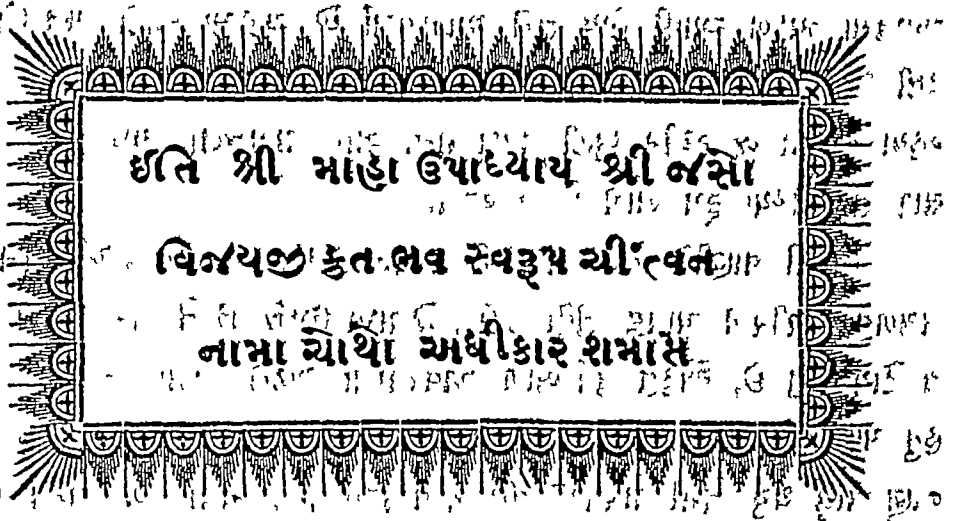 ઈતિ શ્રી માહા ઉપાધ્યાય શ્રી જસો
વિજયજી કૃત ભવ સ્વરૂપ ચીંત્વન
નામા ચોથો અધીકાર શમાપ્ત